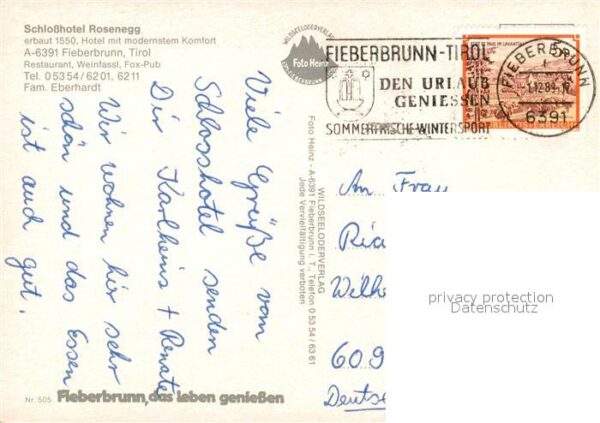 Schloßhotel Rosenegg
erbaut 1550, Hotel mit modernstem Komfort
A-6391 Fieberbrunn, Tirol
Restaurant, Weinfassl, Fox-Pub
Tel. 05354/6201, 6211
Fam. Eberhardt
Viele Grüße vom
Schlosshotel senden
Dir Karlheins + Renate
Wir wohnen hir sehr
schön und das Essen
ist auch gut.
Nr. 505
Fieberbrunn, das Leben genießen
WILDSEELODERVERLAG
Foto Heinz
FIEBERBRUNN
WILDSEELODERVERLAG
Foto Heinz - A-6391 Fieberbrunn i. T., Telefon 0 53 54 / 63 61
Jede Vervielfältigung verboten
FIEBERBRUNN-TIROL
DEN URLAUB
GENIESSEN
SOMMERFRISCHE-WINTERSPORT
FIEBERBRUNN
6391
An Frau
Ria
Wilhe
609
Deutsc
privacy protection
Datenschutz